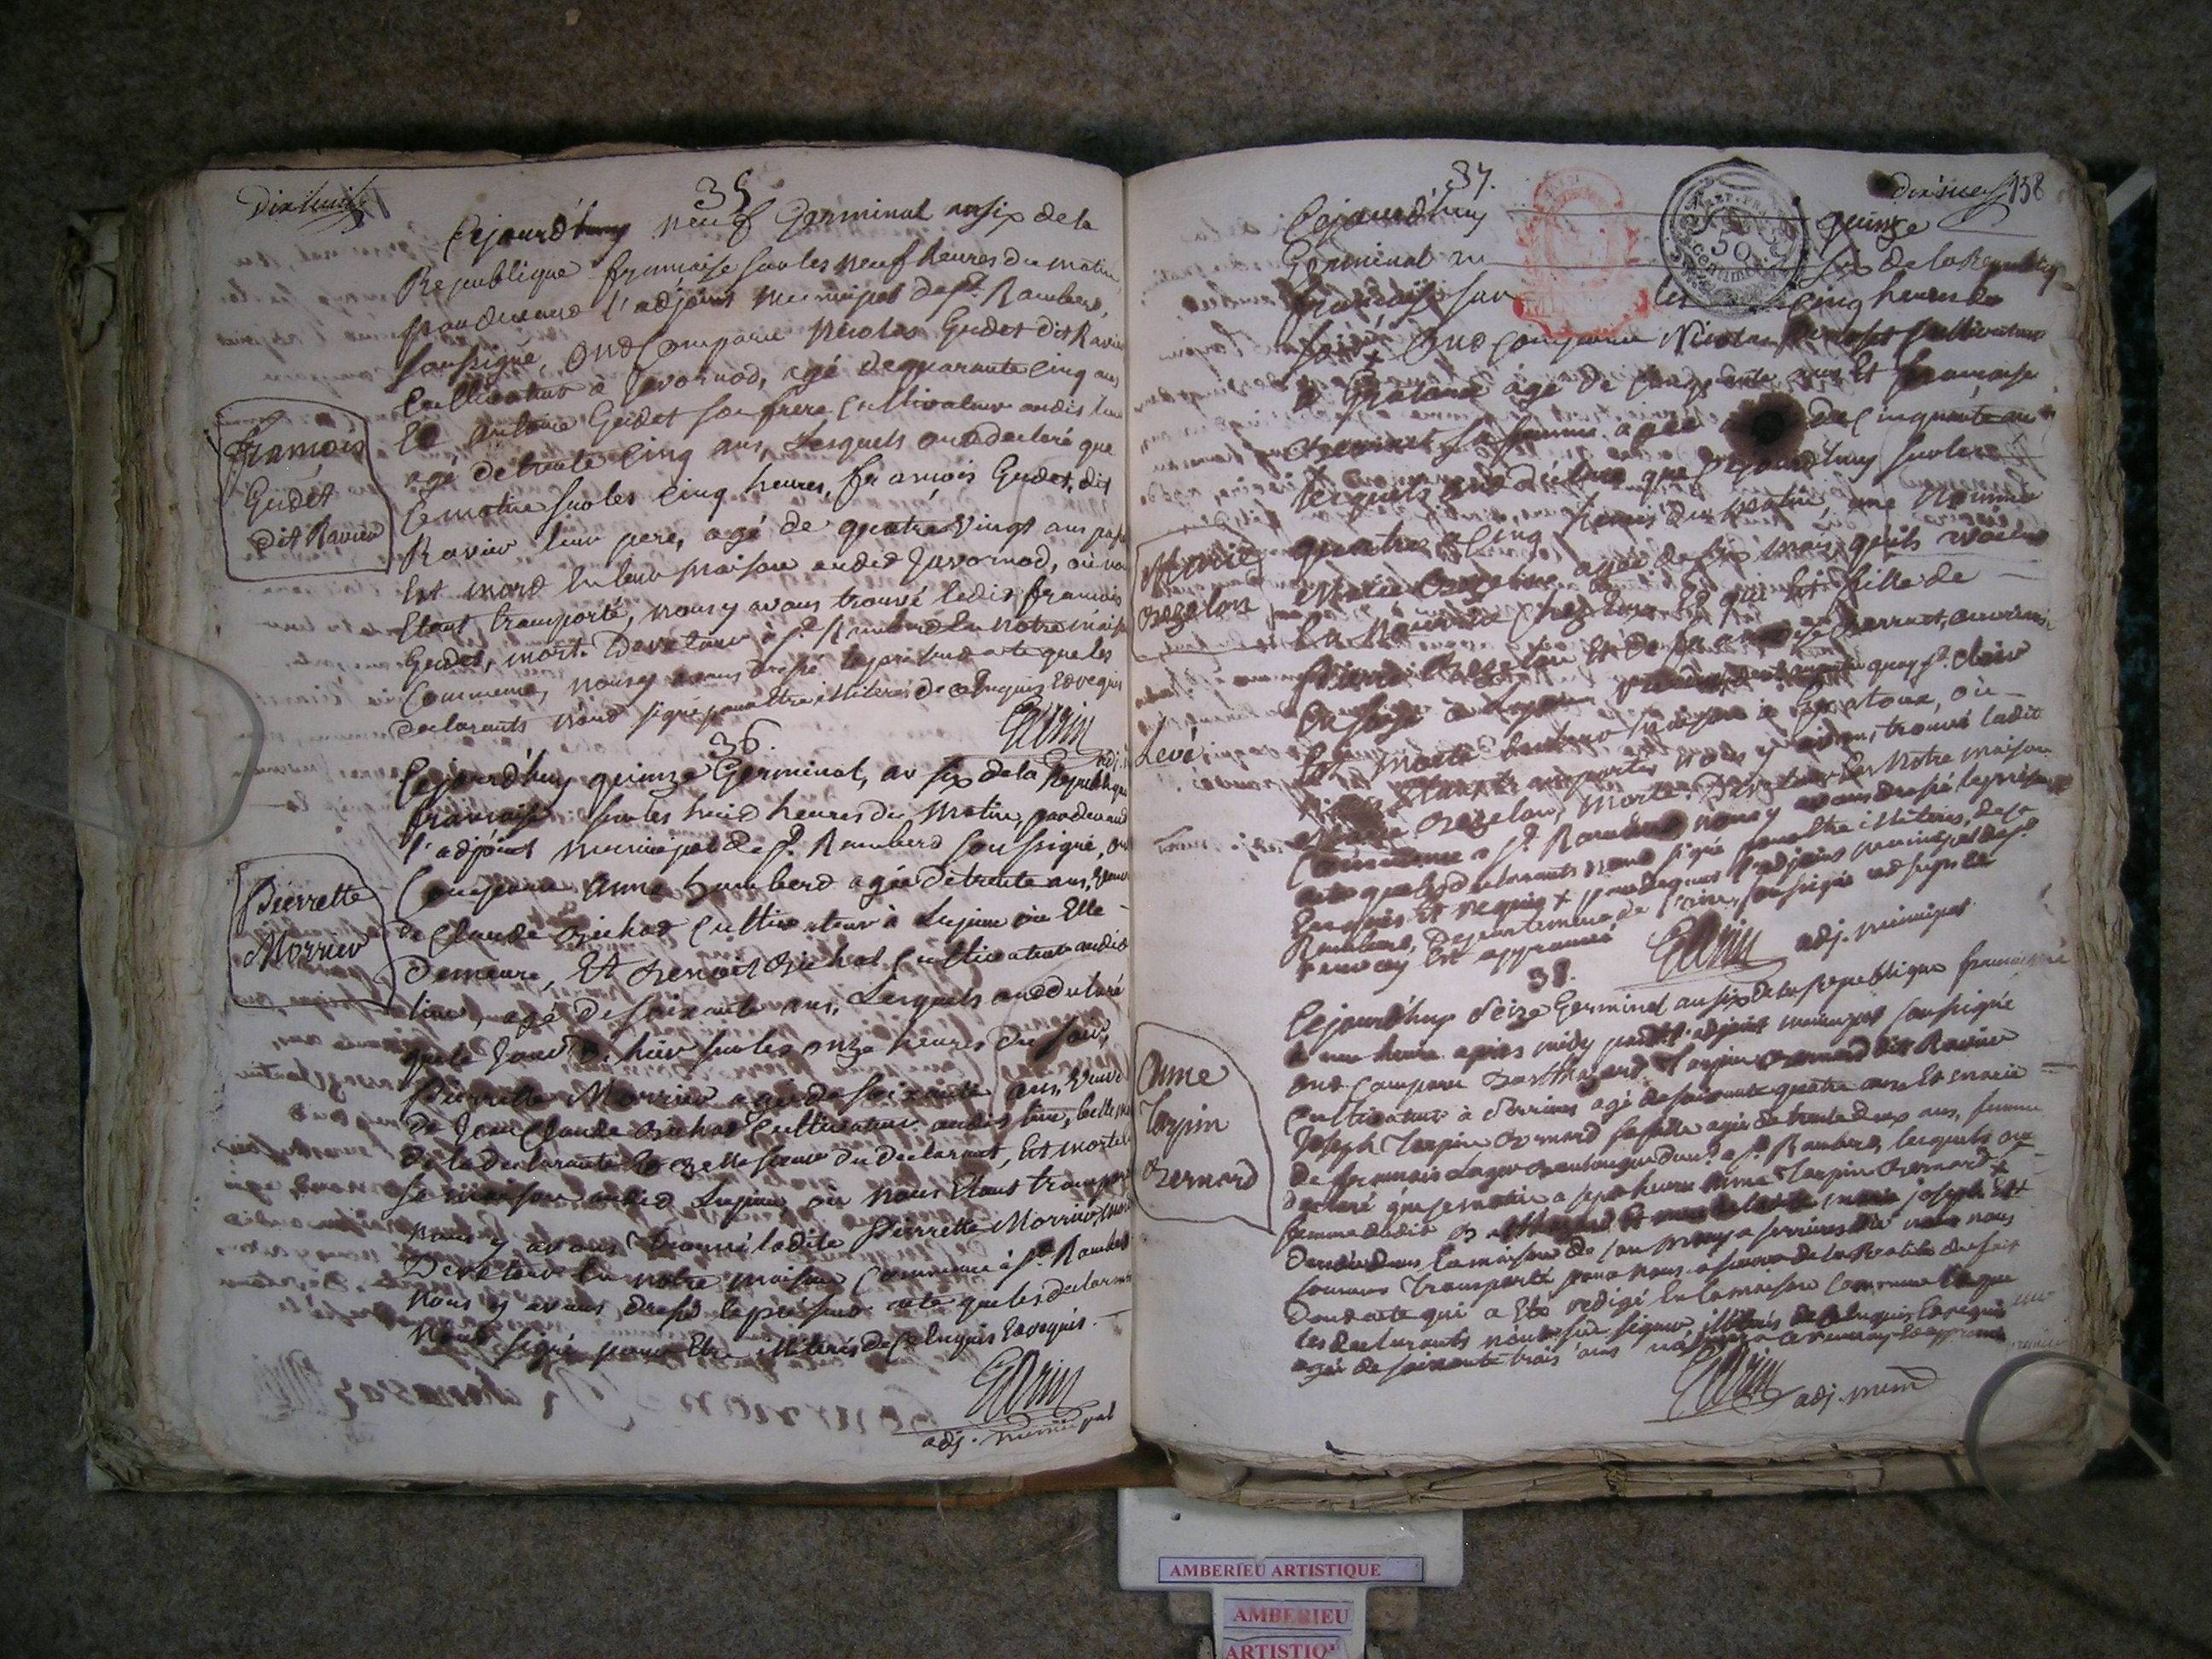 Dixhuit
35
Cejourd'huy neuf Germinal an six de la
Republique françoise sur les neuf heures du matin
pardevand l'adjoint municipal de St. Rambert,
soussigné, ond Comparu Nicolas Gudet dit Ravier
Cultivateur à Javornod, agé de quarante cinq ans
Et antoine Gudet son frere Cultivateur audit lieu
agé de trente cinq ans, Lesquels ond declaré que
Ce matin sur les cinq heures, françois Gudet, dit
Ravier leur pere, agé de quatre vingt ans passé
Est mord En leur maison audit Javornod, où nous
Etant transporté, nous y avons trouvé ledit françois
Gudet, mort. De retour à St. Rambert En notre maison
Commune, nous y avons dressé le présend acte que les
declarants n'ond signé pour Etre illiterés de ce Enquis Et requis
François
Gudet
dit Ravier
36.
Cejourd'huy quinze Germinal, an six de la Republique
françoise sur les huit heures du matin, pardevand
l'adjoint municipal de St. Rambert soussigné, ond
Comparu anne humbert agée de trente ans,
de Claude Cultivateur à Lupieu où Elle
demeure, Et Benoit Cultivateur audit
lieu, agé de soixante ans, Lesquels ond declaré
que le jour de hier sur les onze heures du soir,
Pierrette Morrier agée de soixante ans, veuve
de Jean Claude Cultivateur audit lieu, belle mere
de la declarante Et Belle soeur du declarant, Est morte En
sa maison audit Lupieu, où nous Etant transporté
nous y avons trouvé ladite Pierrette Morrier, morte
De retour En notre maison Commune à St. Rambert
nous y avons dressé le présend acte que les declarants
n'ond signé pour Etre illiterés de Ce Enquis Et requis.
adj. municipal
Pierrette
Morrier
37.
dixneuf 158
50
centimes
Cejourd'huy quinze
Germinal an six de la Republique
françoise sur les cinq heures du
soir + Ond comparu Nicolas Cultivateur
à agé de cinquante ans Et françoise
sa femme agée de cinquante ans
lesquels ond déclaré que cejourd'huy sur les
quatre a cinq heures du matin, une nommée
Marie Bozelon agée de six mois, qu'ils avoient
En nourrice chez Eux Et qui Est fille de
Pierre Bozelon Et de françoise Perruet, ouvriers
En soye à Lyon quay St. clair
Est morte En leur maison à où
nous Etant transporté nous y avons trouvé ladite
Marie Bozelon, morte. De retour En notre maison
Commune a St. Rambert nous y avons dressé le présend
acte que les declarants n'ond signé pour Etre illiterés, de ce
Enquis Et requis + pardevant l'adjoint municipal de St.
Rambert, departement de l'ain, soussigné
renvoy Est approuvé
adj. municipal
Marie
Bozelon
Levé.
38.
Cejourd'huy seize Germinal an six de la republique françoise
a une heure apres midy pard. l'adjoint municipal soussigné
ond Comparu Barthelemy Tarpin Bernard dit Ravier
Cultivateur à Serrieres agé de soixante quatre ans Et marie
Joseph Tarpin Bernard sa fille agée de trente deux ans, femme
de françois a St. Rambert, lesquels ond
declaré que ce matin a sept heures Anne Tarpin Bernard +
femme dudit Barthelemy Et mere de marie joseph Est
decedée dans la maison de son mary a Serrieres où nous nous
sommes transporté pour nous assurer de la realité du fait
dond acte qui a Eté redigé En la maison Commune Et que
les declarants n'ond sçu signer illiterés de ce Enquis Et requis
agée de soixante trois ans renvoy Est approuvé
adj. mun
Anne
Tarpin
Bernard
AMBERIEU ARTISTIQUE
AMBERIEU
ARTISTIQ